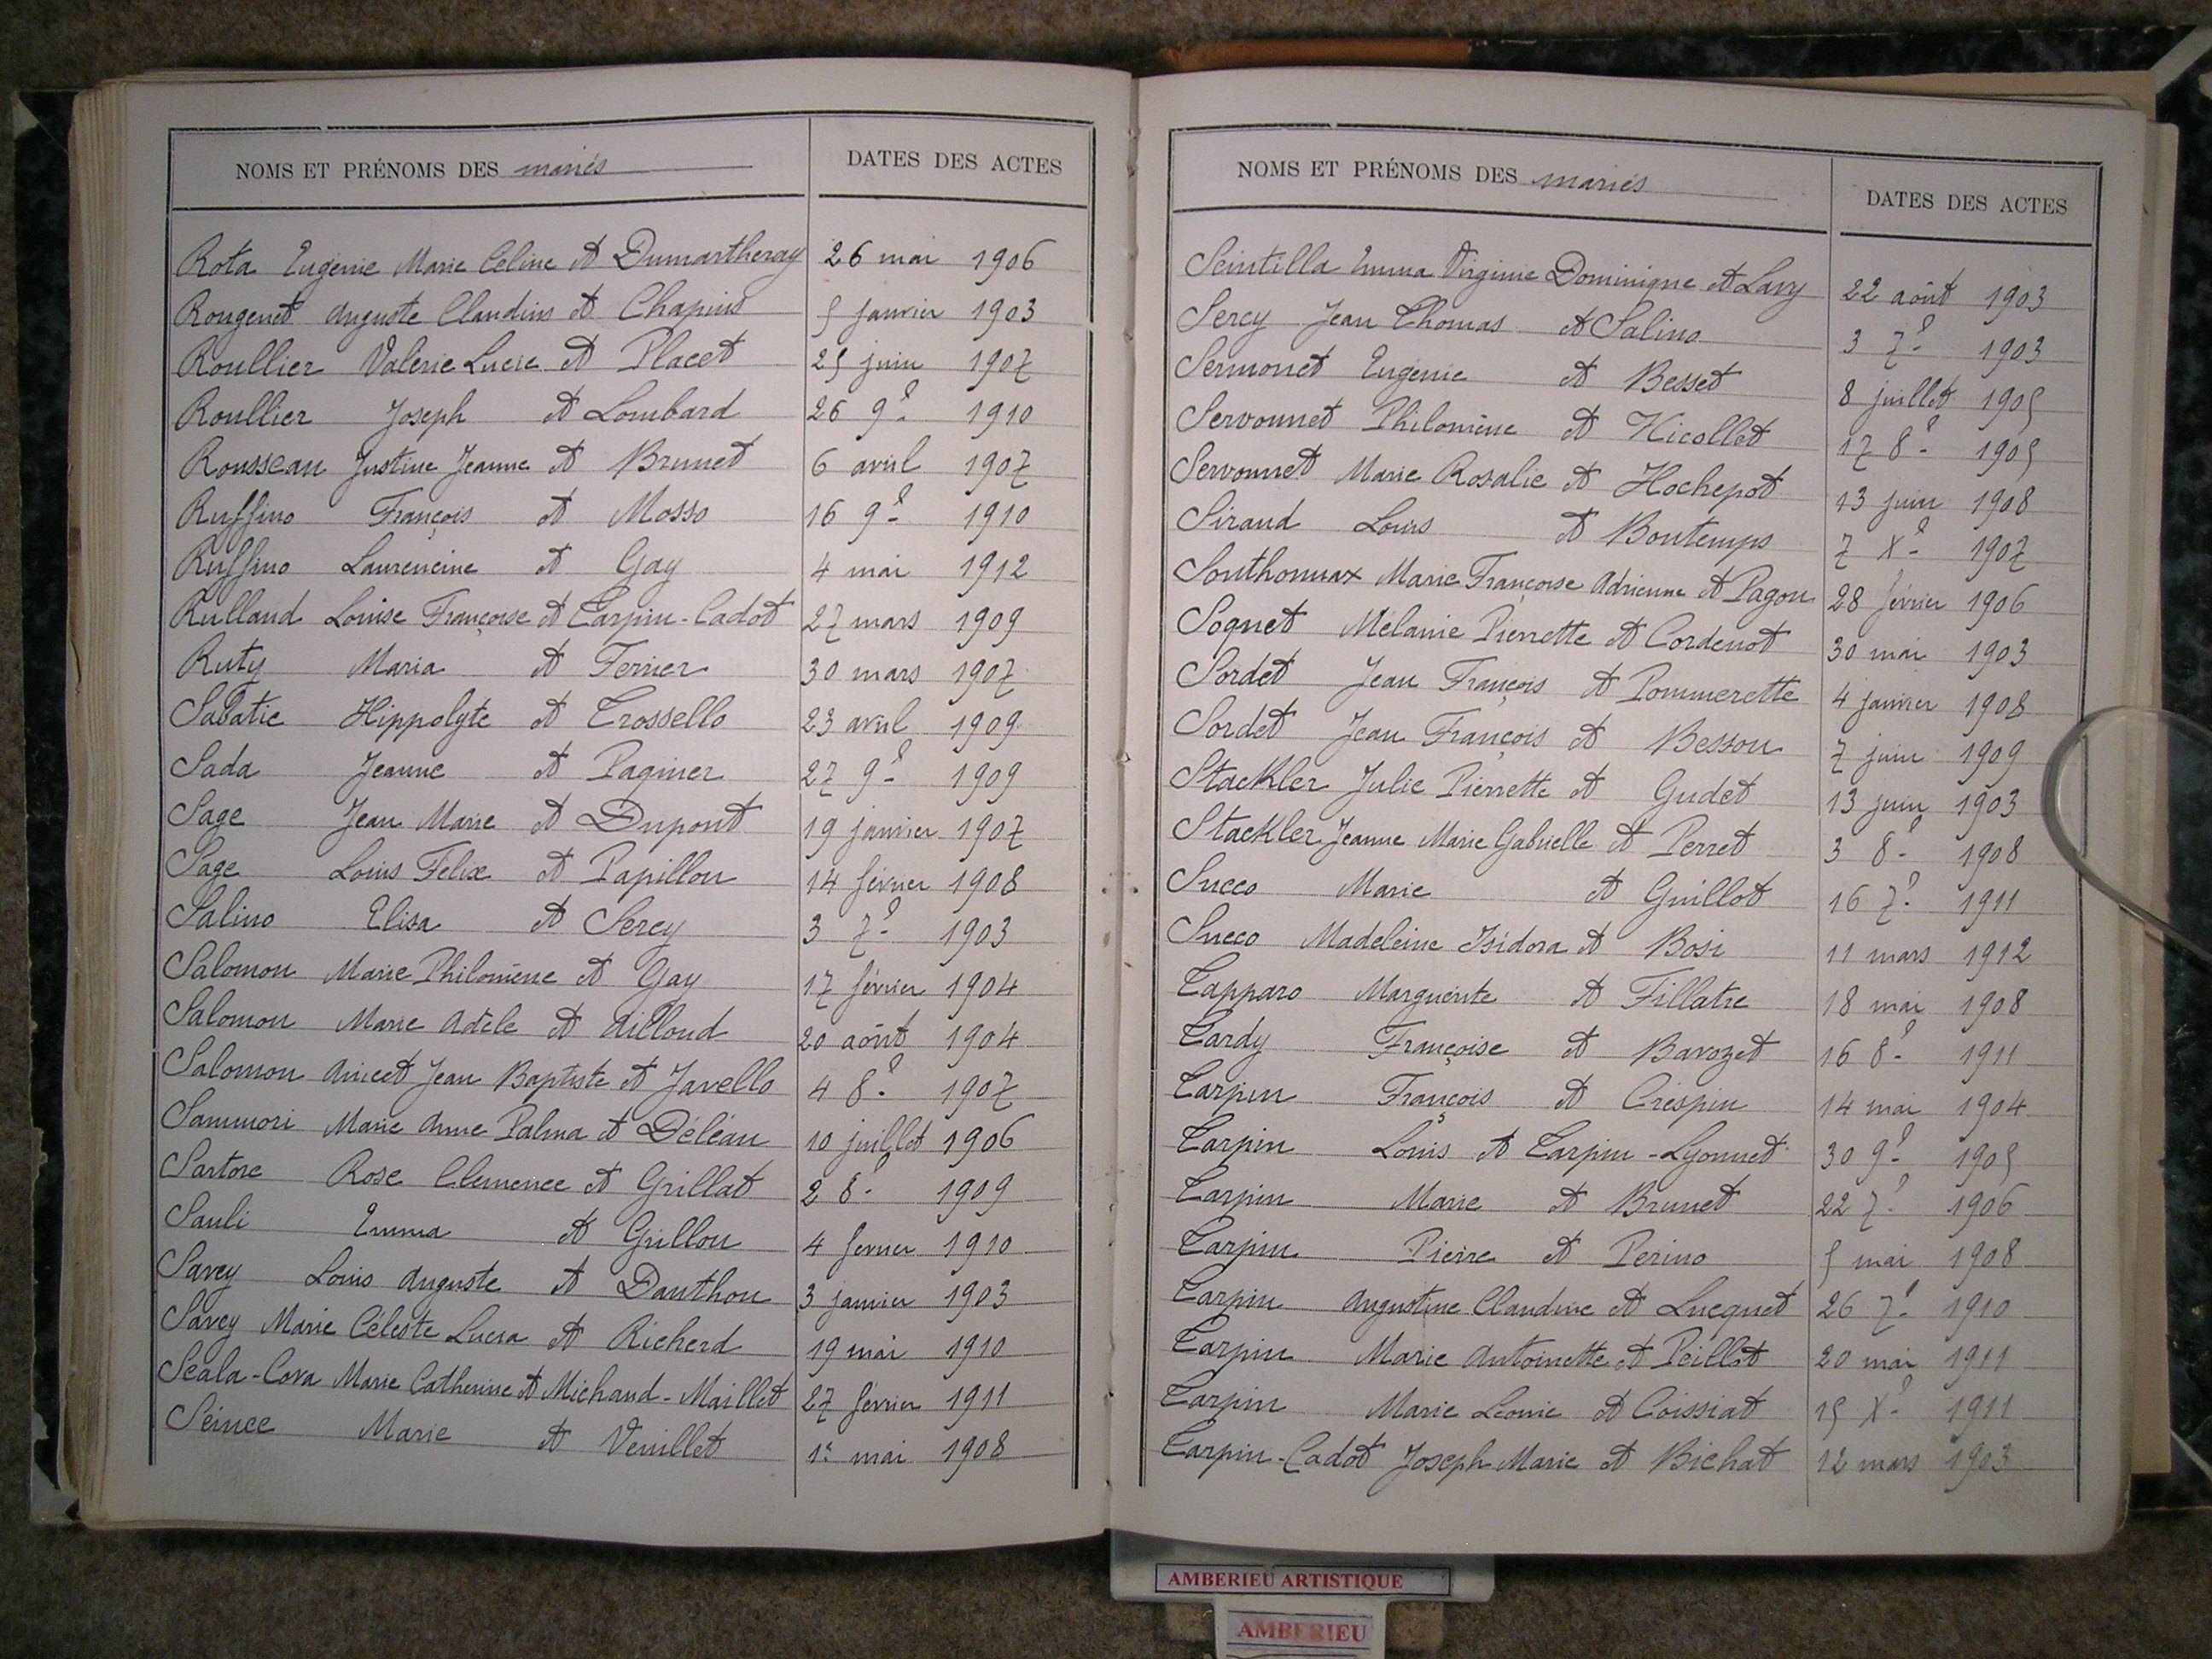 NOMS ET PRÉNOMS DES mariés DATES DES ACTES
Rota Eugénie Marie Céline et Dumartheray 26 mai 1906
Rougenet Auguste Claudius et Chapuis 5 janvier 1903
Roullier Valérie Lucie et Placet 25 juin 1907
Roullier Joseph et Lombard 26 9e 1910
Rousseau Justine Jeanne et Brunet 6 avril 1907
Ruffino François et Mosso 16 9e 1910
Ruffino Laurencine et Gay 4 mai 1912
Rulland Louise Françoise et Tarpin-Cadot 27 mars 1909
Ruty Maria et Ferrier 30 mars 1907
Sabatié Hippolyte et Trossello 23 avril 1909
Sada Jeanne et Paginer 27 9e 1909
Sage Jean Marie et Dupont 19 janvier 1907
Sage Louis Felix et Papillon 14 février 1908
Salino Elisa et Sercy 3 7e 1903
Salomon Marie Philomène et Gay 17 février 1904
Salomon Marie Adèle et Ailloud 20 août 1904
Salomon Anicet Jean Baptiste et Javello 4 8e 1907
Sammori Marie Anne Palma et Déléan 10 juillet 1906
Sartore Rose Clémence et Grillat 2 8e 1909
Sauli Emma et Grillon 4 fevrier 1910
Savey Louis Auguste et Danthon 3 janvier 1903
Savey Marie Céleste Lucia et Richerd 19 mai 1910
Scala-Cova Marie Catherine et Michaud-Maillet 27 février 1911
Seince Marie et Venillet 1er mai 1908
NOMS ET PRÉNOMS DES mariés DATES DES ACTES
Scintilla Emma Virginie Dominique et Lavy 22 août 1903
Sercy Jean Thomas et Salino 3 7e 1903
Sermonet Eugénie et Besset 8 juillet 1905
Servonnet Philomène et Nicollet 17 8e 1905
Servonnet Marie Rosalie et Hochepot 13 juin 1908
Siraud Louis et Bontemps 7 Xe 1907
Southonnax Marie Françoise Adrienne et Pagon 28 février 1906
Soquet Mélanie Pierrette et Cordenot 30 mai 1903
Sordet Jean François et Pommerette 4 janvier 1908
Sordet Jean François et Besson 7 juin 1909
Stackler Julie Pierrette et Gudet 13 juin 1903
Stackler Jeanne Marie Gabrielle et Perret 3 8e 1908
Succo Marie et Guillot 16 7e 1911
Succo Madeleine Isidora et Bosi 11 mars 1912
Tapparo Marguerite et Fillatre 18 mai 1908
Tardy Françoise et Bavozet 16 8e 1911
Tarpin François et Crespin 14 mai 1904
Tarpin Louis et Tarpin-Lyonnet 30 9e 1905
Tarpin Marie et Brunet 22 7e 1906
Tarpin Pierre et Perino 5 mai 1908
Tarpin Augustine Claudine et Lucquet 26 7e 1910
Tarpin Marie Antoinette et Peillot 20 mai 1911
Tarpin Marie Léonie et Coissiat 15 Xe 1911
Tarpin-Cadot Joseph Marie et Bichat 12 mars 1903
AMBERIEU ARTISTIQUE
AMBERIEU